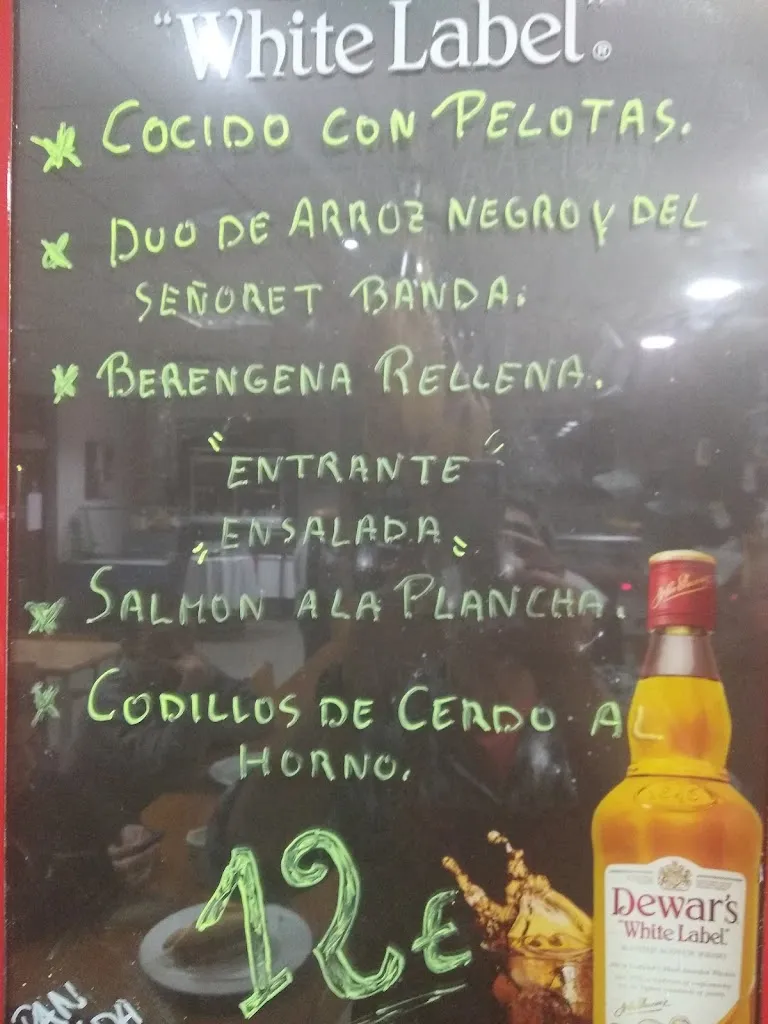 "White Label"®
COCIDO CON PELOTAS.
DUO DE ARROZ NEGRO Y DEL
SEÑORET BANDA.
BERENGENA RELLENA.
"ENTRANTE"
"ENSALADA"
SALMON A LA PLANCHA.
CODILLOS DE CERDO AL
HORNO.
12€
Dewar's
"White Label"
PAN